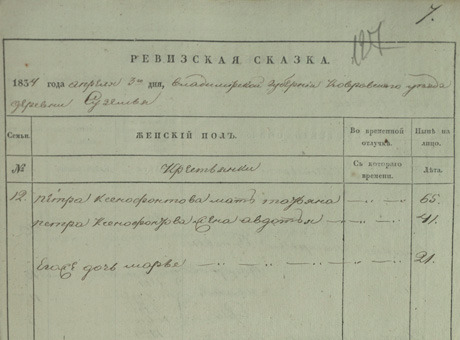 7.
127
РЕВИЗСКАЯ СКАЗКА.
1834 года апреля 3го дня, Владимирской губернии Ковровского уезда
деревни
Семьи. ЖЕНСКІЙ ПОЛЪ. Во временной отлучкѣ. Нынѣ на лицо.
№ Крестьянки Съ котораго времени. Лѣта.
12. Петра Ксенофонтова мать Татьяна 65.
Петра Ксенофонтова жена Авдотья 41.
Его дочь Марья 21.